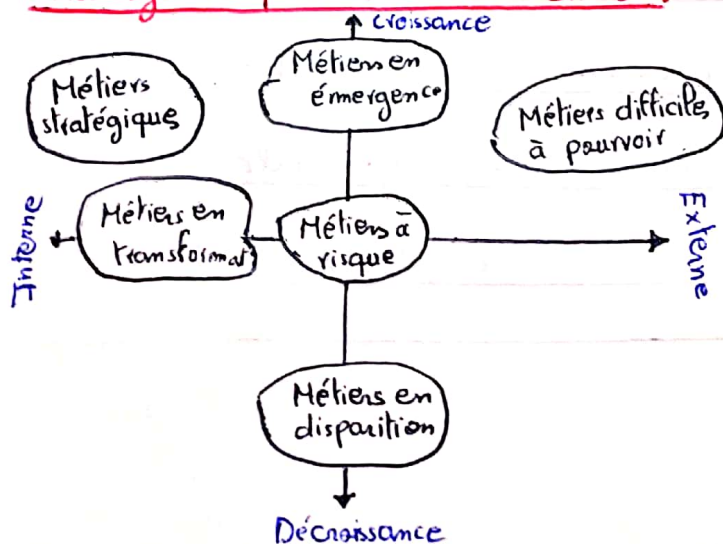 croissance
Métiers en
émergence
Métiers
stratégiques
Métiers difficiles
à pourvoir
Interne
Métiers en
transformat°
Métiers à
risque
Externe
Métiers en
disparition
Décroissance